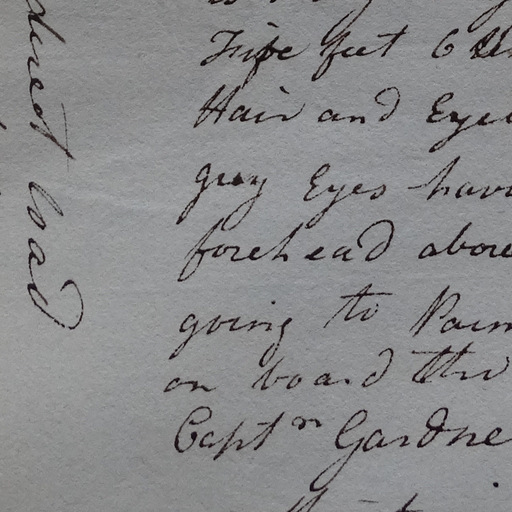 Five feet 6
Hair and Eye
grey Eyes hav
forehead above
going to Parm
on board the
Captn Gardne
direct had